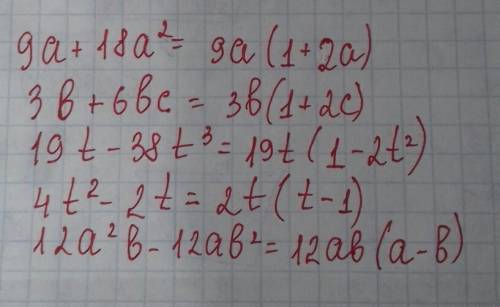 9a + 18a² = 9a (1 + 2a)
3в + 6вс = 3в (1 + 2с)
19t - 38t³ = 19t (1 - 2t²)
4t² - 2t = 2t (t - 1)
12a²в - 12aв² = 12aв (a - в)